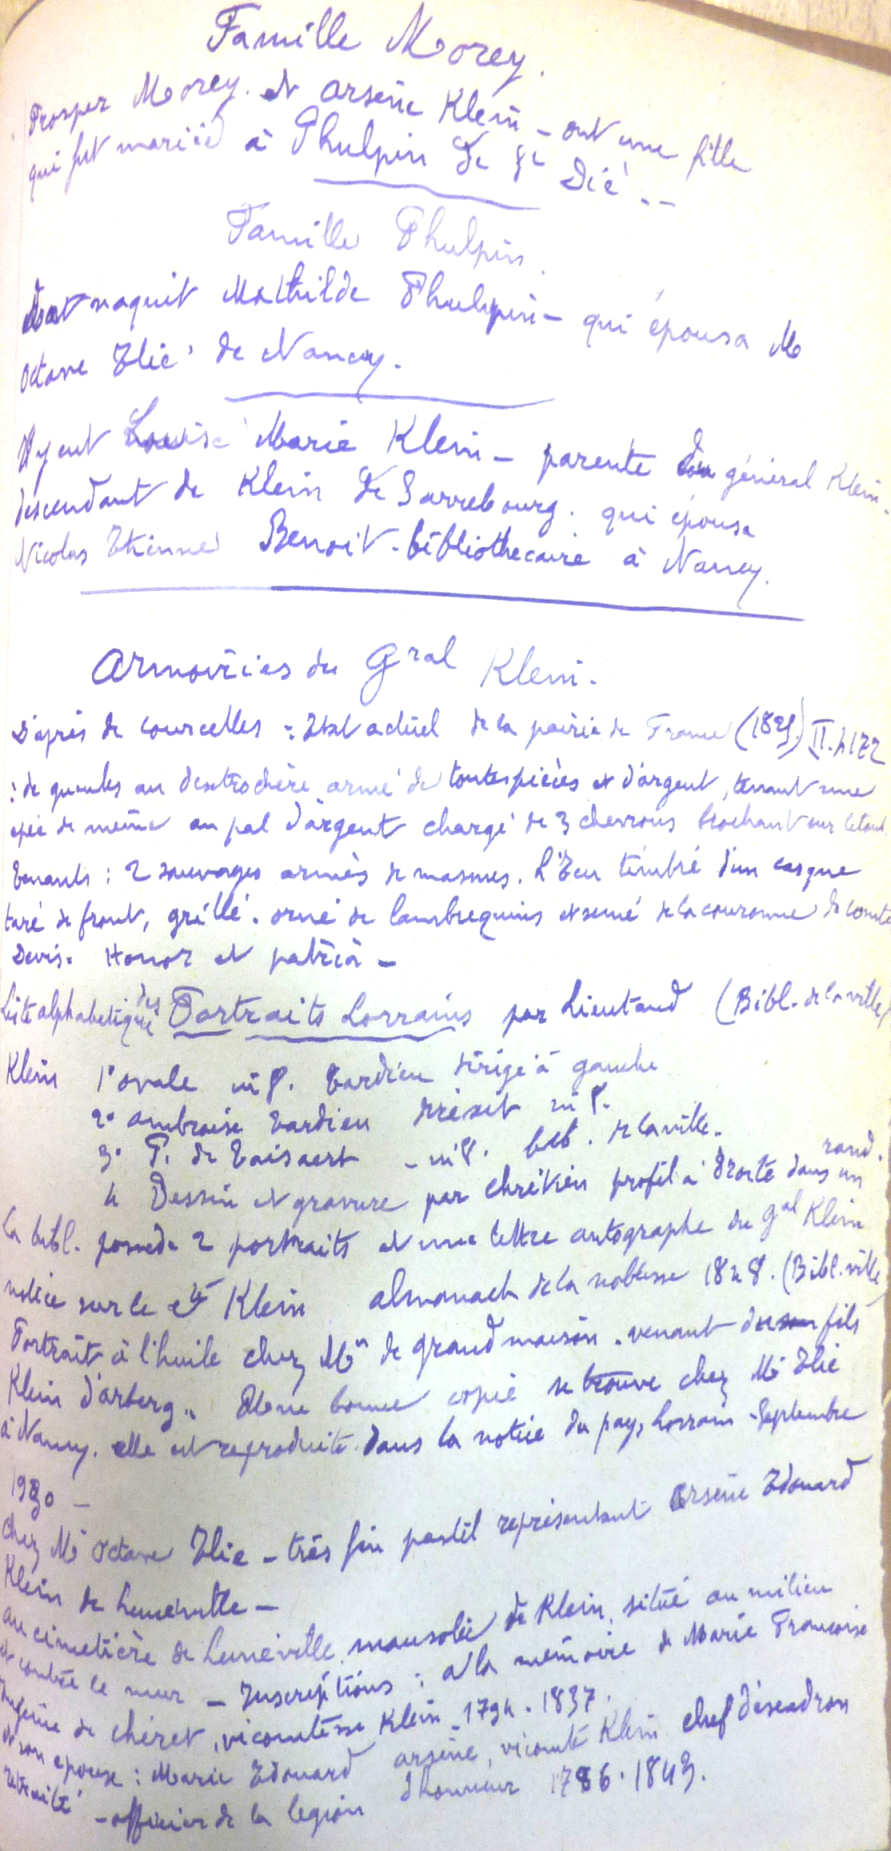 Famille Morey.
Prosper Morey. et arsène Klein - ont une fille
qui fut mariée à Phulpin de St Dié. --
Famille Phulpin.
naquit Mathilde Phulpin - qui épousa M
Octave Elie de Nancy.
Il y eut Louise Marie Klein - parente du général Klein.
descendant de Klein de Sarrebourg. qui épousa
Nicolas Etienne Benoit - bibliothecaire à Nancy.
Armoiries du Gral Klein.
D'après de Courcelles : Etat actuel de la pairie de France II. p 122
: de gueules au dextrochère armé de toutes pièces et d'argent, tenant une
epée de même au pal d'argent chargé de 3 chevrons brochant sur le tout.
Tenants : 2 sauvages armés de massues. L'Ecu timbré d'un casque
taré de front, grillé. orné de lambrequins et de la couronne de comte
Devise. Honor et patria -
Liste alphabétique des Portraits Lorrains par Lieutaud (Bibl. de la ville)
Klein 1° ovale in 8. Tardieu dirigé à gauche
2° ambroise Tardieu direxit in 8.
3° P. de - in 8. bib. de la ville.
4 Dessin et gravure par chrétien profil à droite dans un rond.
La bibl. possède 2 portraits et une lettre autographe du gal Klein
notice sur le Cte Klein almanach de la noblesse 1848. (Bibl. ville)
Portrait à l'huile chez Mn de grandmaison. venant du fils
Klein d'arberg. Une bonne copie se trouve chez Mr Elie
à Nancy. elle est reproduite dans la notice du pays Lorrain - Septembre
1930 -
chez Mr Octave Elie - très fin pastel représentant arsène Edouard
Klein de Luneville -
au cimetière de Luneville mausolée de Klein, situé au milieu
et contre le mur - Inscriptions : a la mémoire de Marie Françoise
de chéret, vicomtesse Klein 1794. 1837.
et son epoux : Marie Edouard arsène, vicomte Klein chef d'escadron
retraité - officier de la legion d'honneur 1786. 1843.